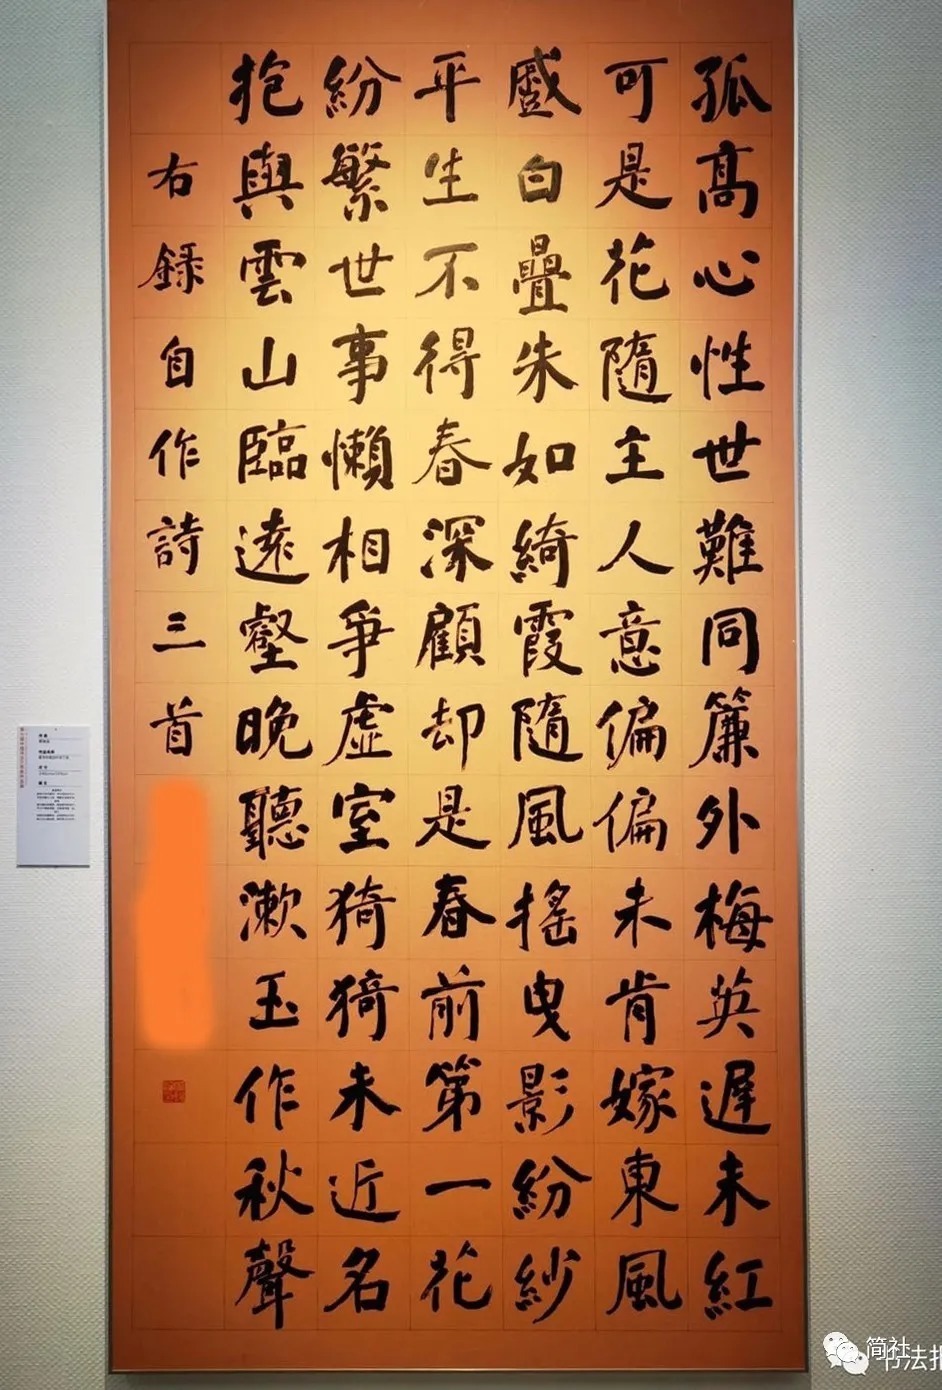 孤高心性世難同簾外梅英遲未紅
可是花隨主人意偏偏未肯嫁東風
蹙白疊朱如綺霞隨風搖曳影紛紗
平生不得春深顧却是春前第一花
紛繁世事懶相爭虛室猗猗未近名
抱與雲山臨遠壑晚聽漱玉作秋聲
右錄自作詩三首
简社
书法报